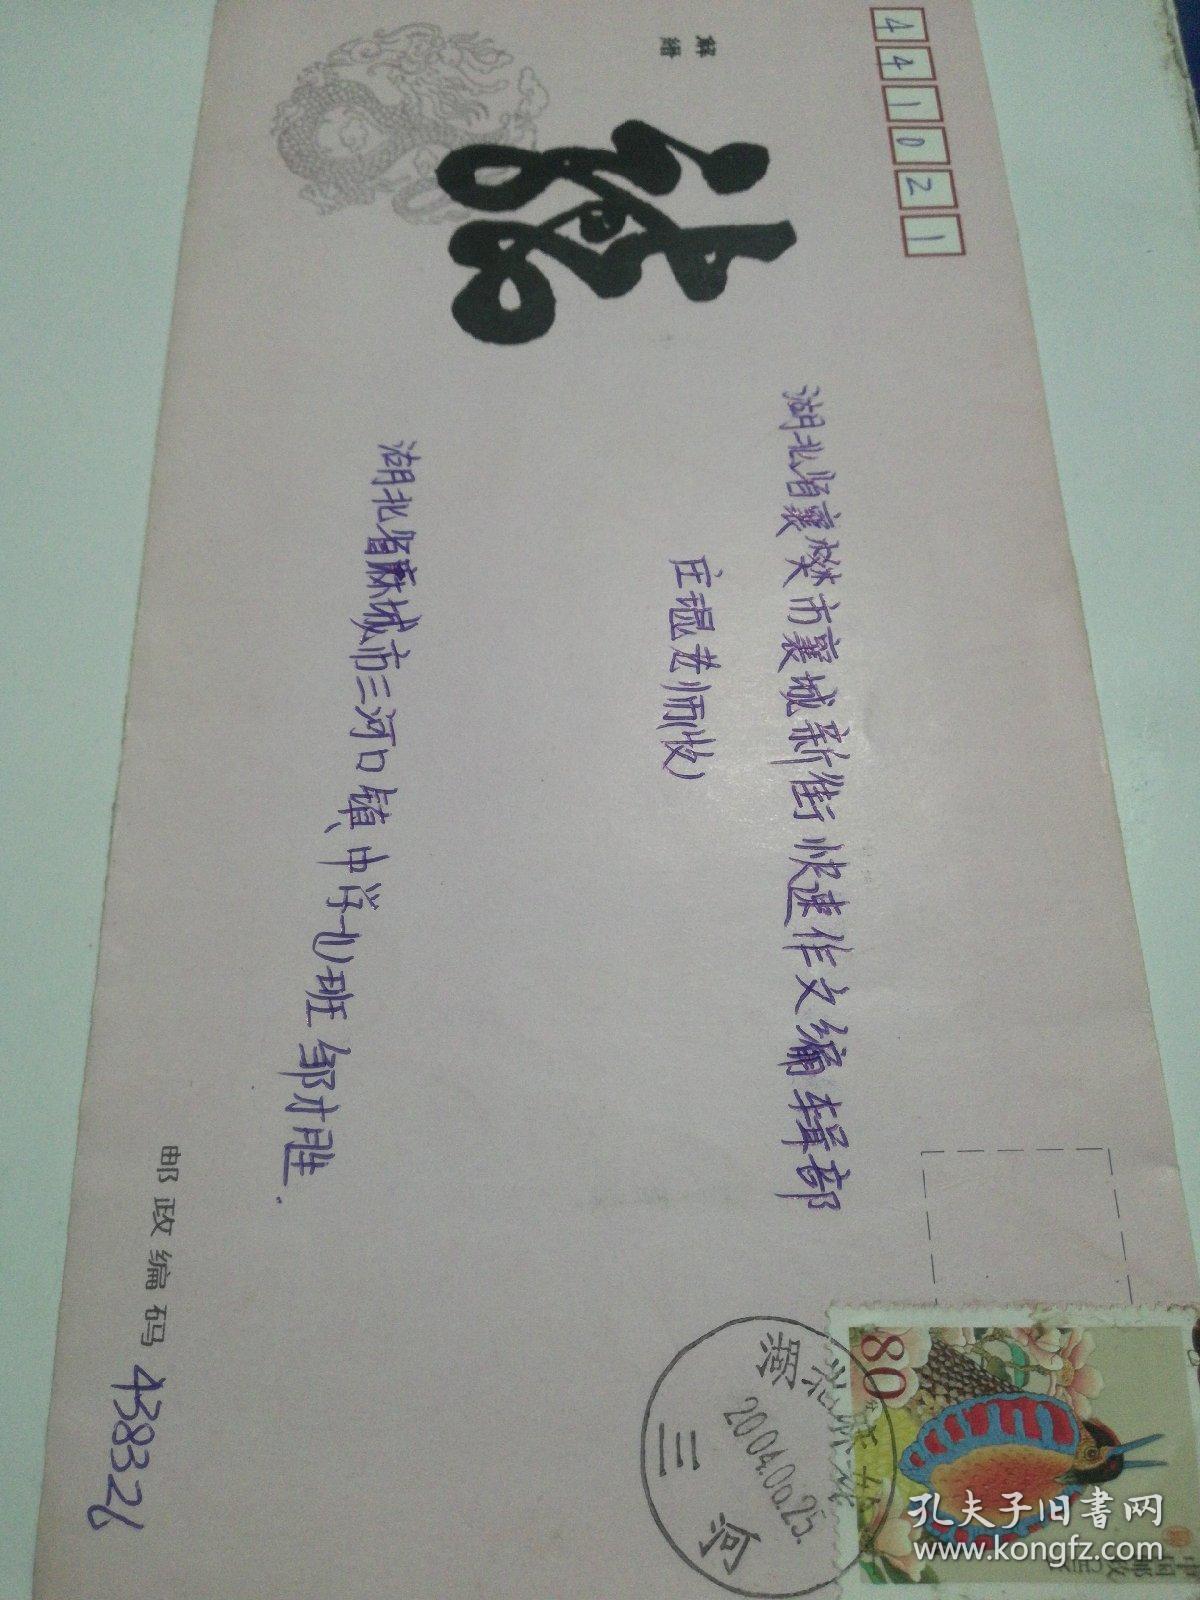 441021
解
缙
湖北省襄樊市襄城新街快速作文编辑部
庄锟老师(收)
湖北省麻城市三河口镇中学九(1)班 邹才胜.
邮政编码 438326
80分
中国邮政
湖北麻城
2004.06.25.
三河
孔夫子旧书网
www.kongfz.com